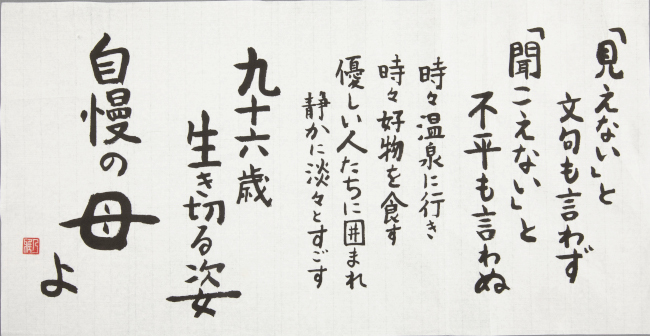 「見えない」と
文句も言わず
「聞こえない」と
不平も言わぬ
時々温泉に行き
時々好物を食す
優しい人たちに囲まれ
静かに淡々とすごす
九十六歳
生き切る姿
自慢の母
よ